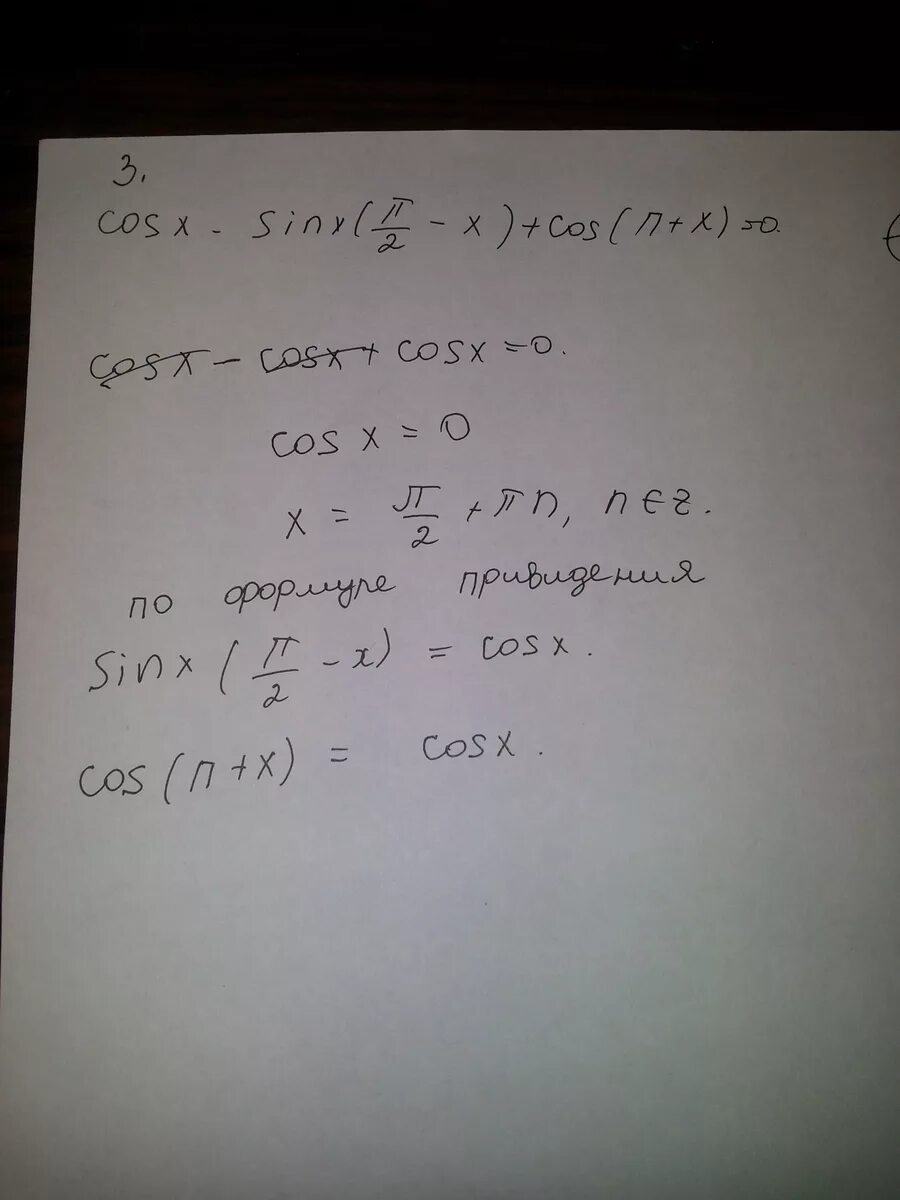 3.
cos x - sinx(π/2 - x) + cos(π + x) = 0.
cosx - cosx + cosx = 0.
cos x = 0
x = π/2 + πn, n ∈ z.
по формуле привидения
sinx(π/2 - x) = cosx.
cos(π + x) = cosx.